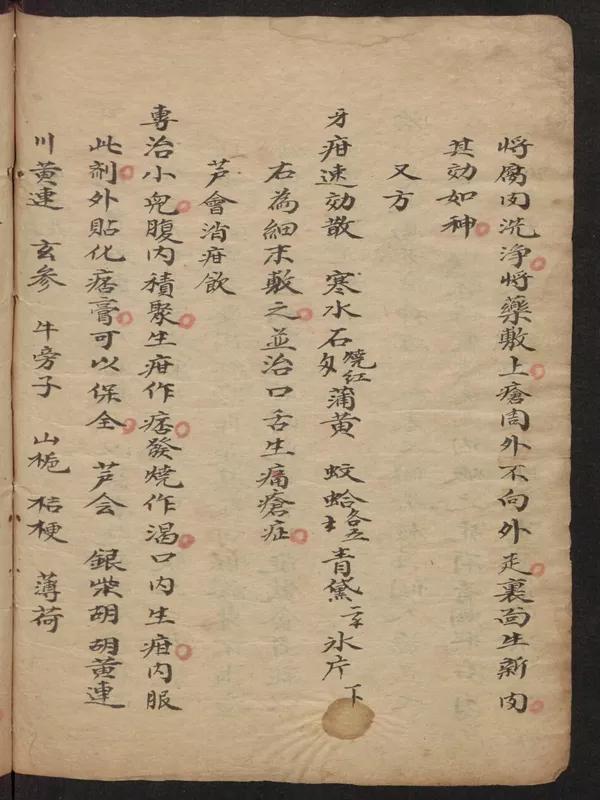 将腐肉洗净将藥敷上瘡周外不向外走裏面生新肉
其効如神
又方
牙疳速効散 寒水石燒紅蒲黄 蚊蛤各五青黛 氷片
右為細末敷之並治口舌生痛瘡症
芦會消疳飲
專治小兒腹内積聚生疳作痞發燒作渴口内生疳内服
此剤外貼化痞膏可以保全 芦会 銀柴胡 胡黄連
川黄連 玄参 牛旁子 山梔 桔梗 薄荷